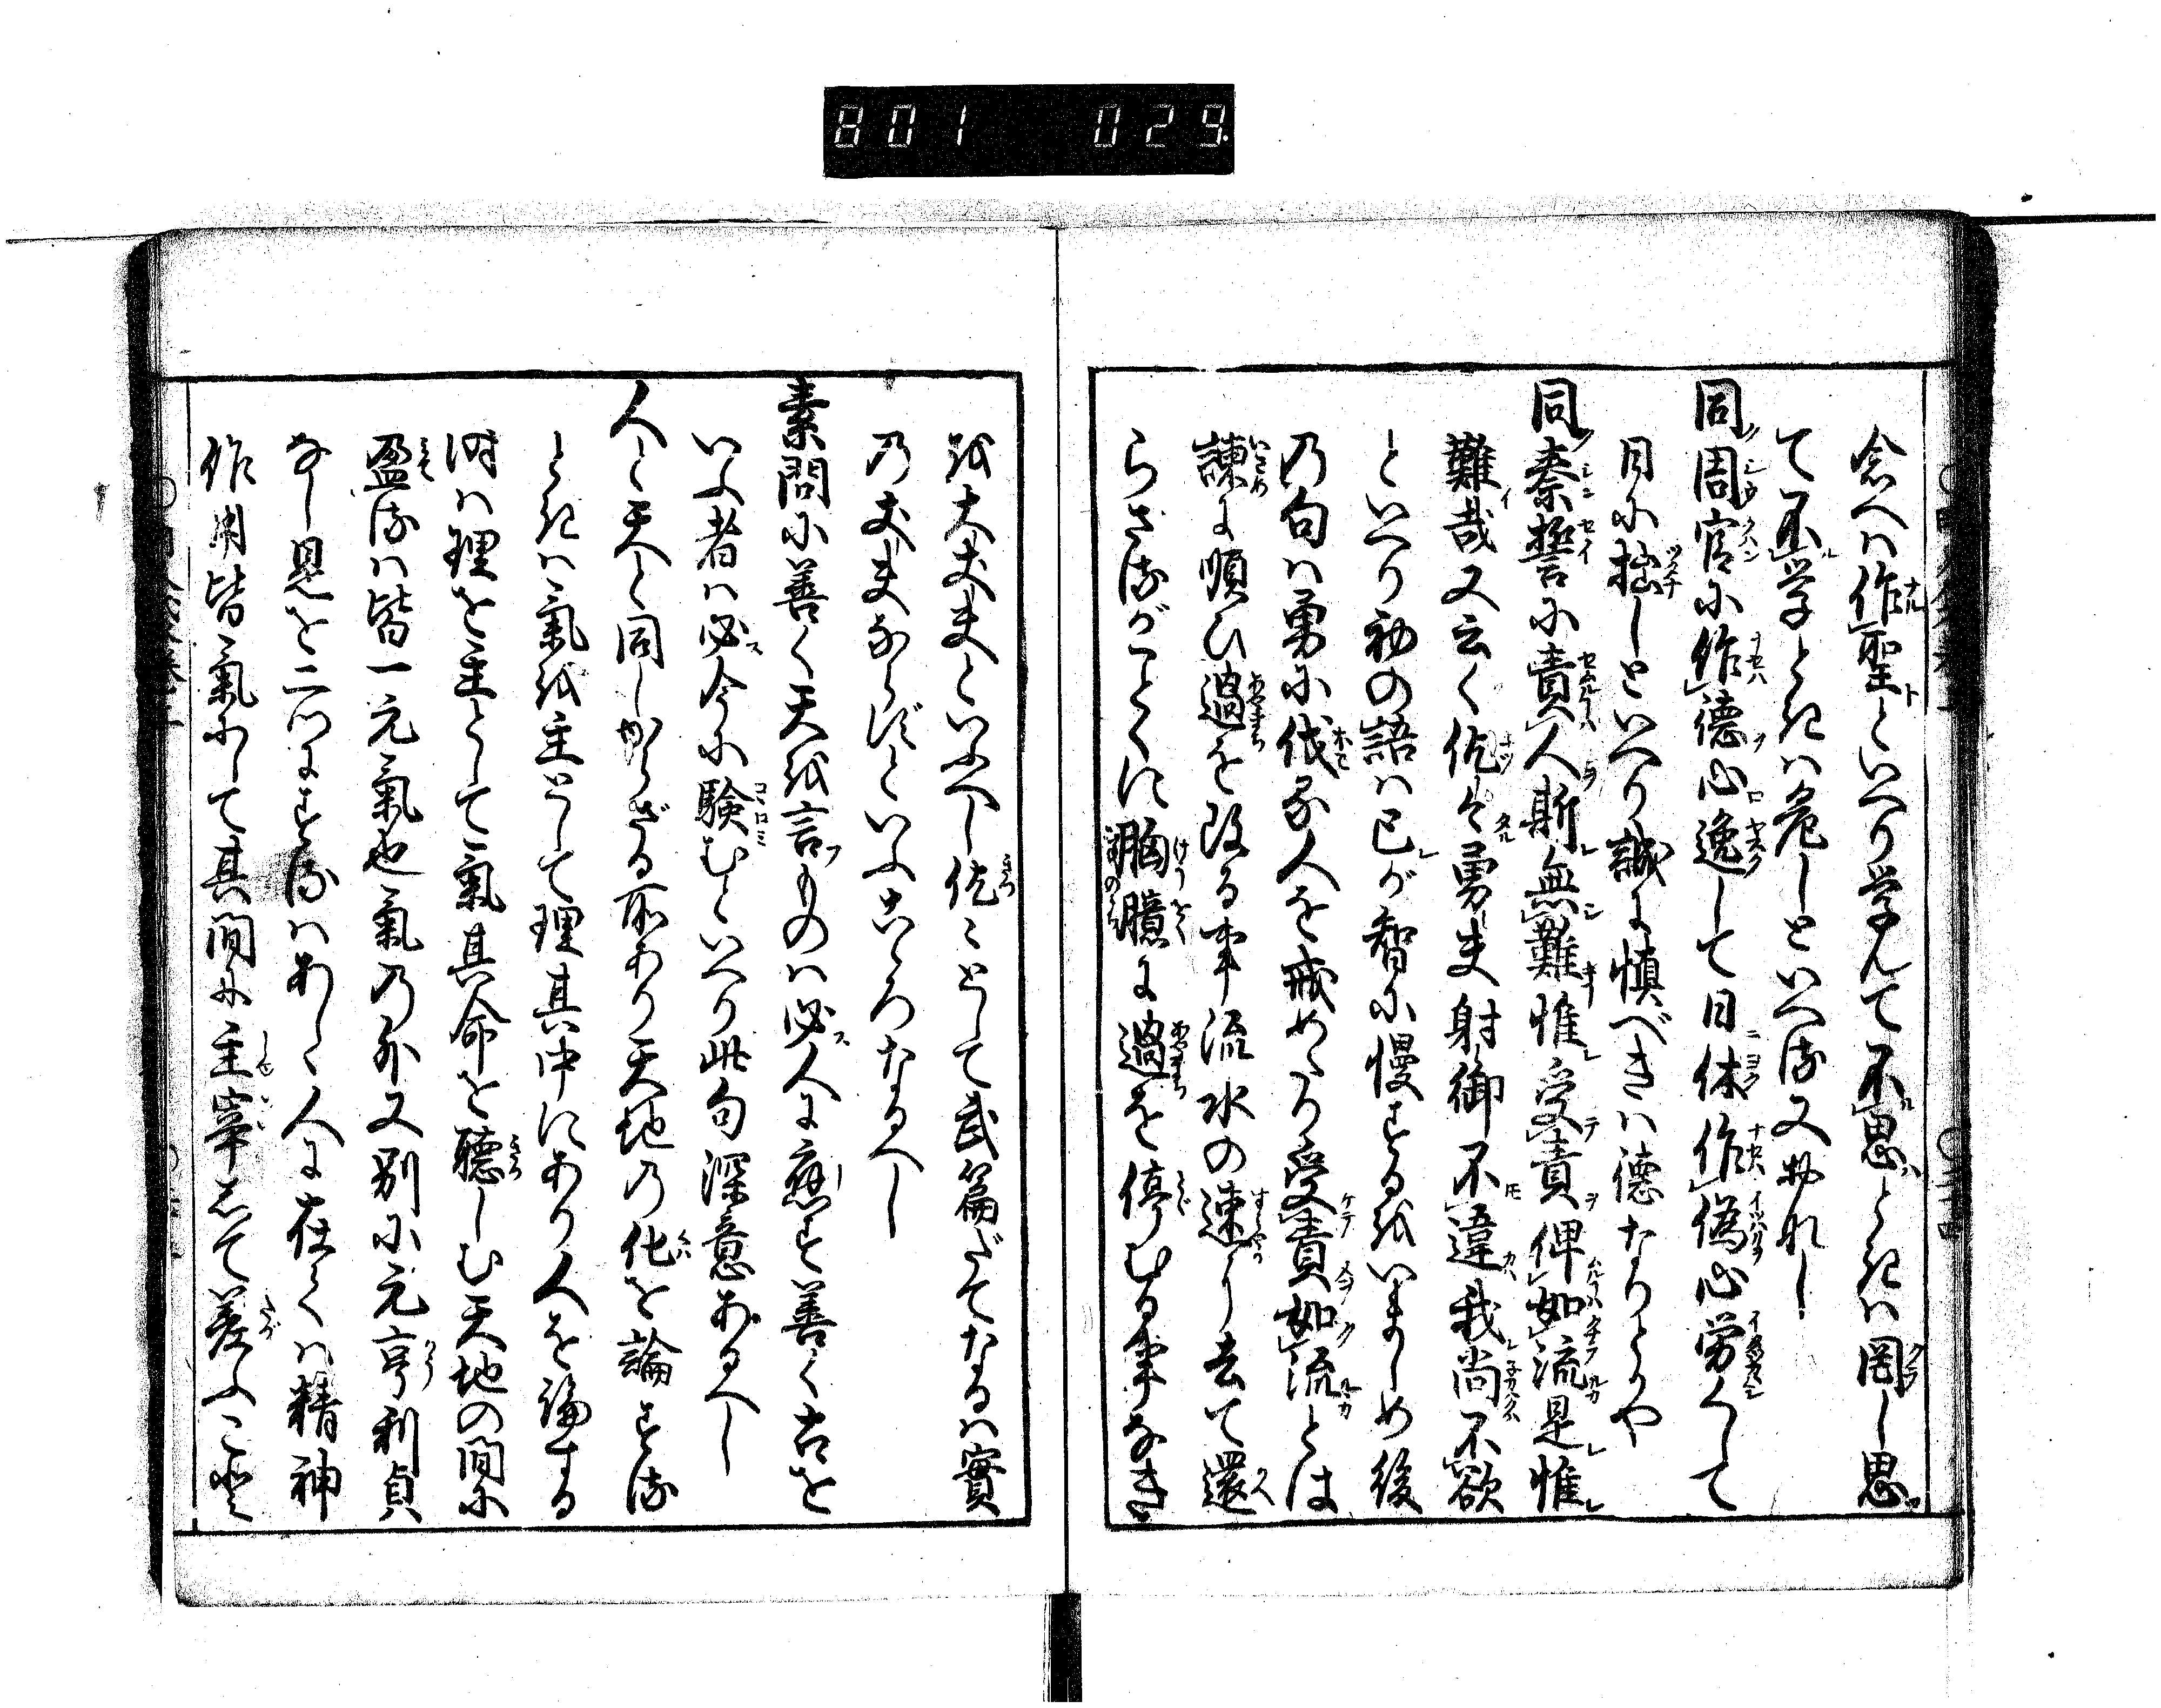 801 029
念へハ作聖といへり学んて不思ときハ罔し思
て不学ときハ危しといへる又おなし
同周官に作德心逸して日休作偽心労くして
日に拙しといへり誠に慎べきハ德なりとかや
同秦誓に責人斯無難惟受責俾如流是惟
難哉又云く仡々勇夫射御不違我尚不欲
といへり初の語ハ己が智に慢するをいましめ後
乃句ハ勇に伐る人を戒めたり受責如流とは
諫に順ひ過を改る事流水の速かに去て還
らざるがことくに胸臆に過を停むる事なき
を大丈夫といふへし仡々として武篇だてなるハ實
乃丈夫ならずといふこころなるへし
素問に善く天を言ものハ必人に應す善く古を
いふ者ハ必今に験むといへり此句深意あるへし
人と天と同しからざる所あり天地乃化を論する
ときハ氣を主として理其中にあり人を論する
時ハ理を主として氣其命を聽しむ天地の間に
盈るハ皆一元氣也氣乃外又別に元亨利貞
なし是を二つにするハあしく人に在てハ精神
作用皆氣にして其間に主宰して差ふこと